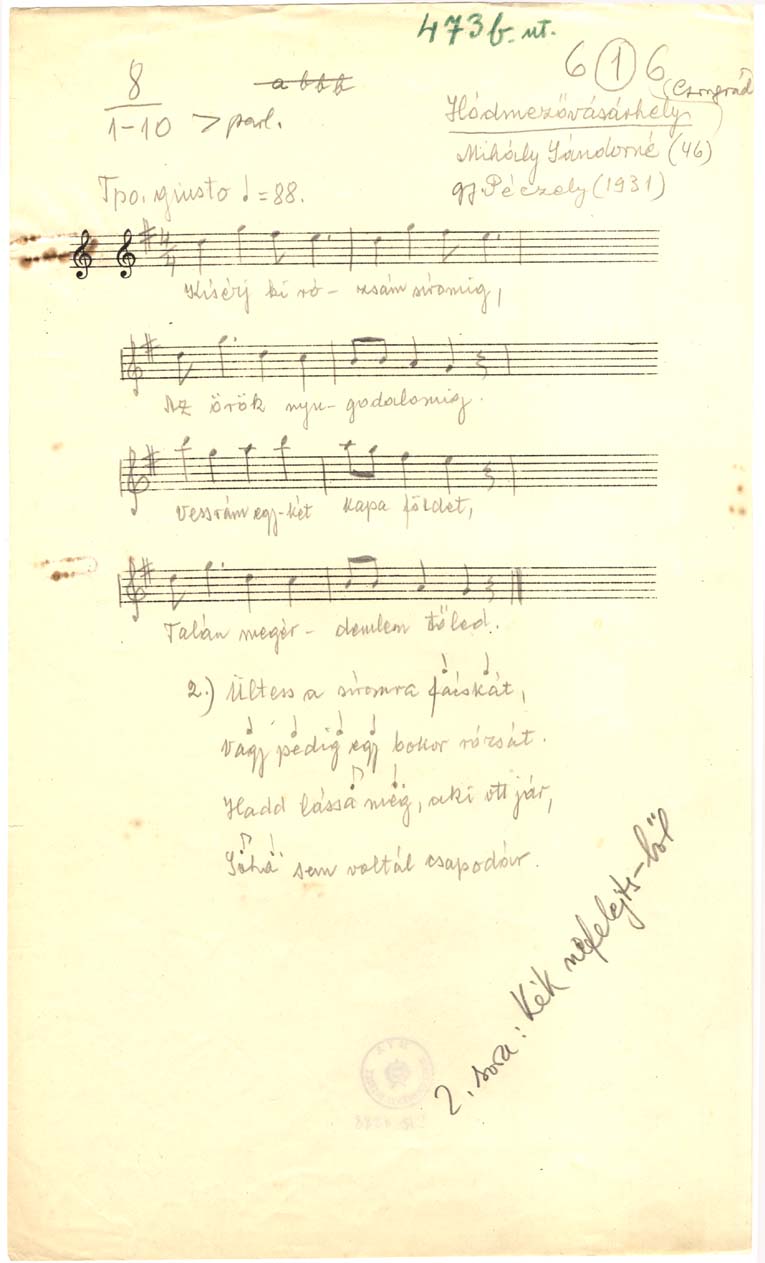 473 b. ut.
8
1-10 > parl.
a b b b
6 1 6
(Csongrád)
Hódmezővásárhely
Mihály Sándorné (46)
gy. Péczely (1931)
Tpo. giusto ♩=88.
4/4
Kisérj ki ró-zsám síromig,
Az örök nyu-godalomig.
Vess rám egy-két kapa földet,
Talán megér-demlem tőled.
2.) Ültess a síromra fácskát,
Vagy pedig egy bokor rózsát.
Hadd lássa még, aki ott jár,
Sohä sem voltál csapodár.
2. sora: Kék nefelejts-ből